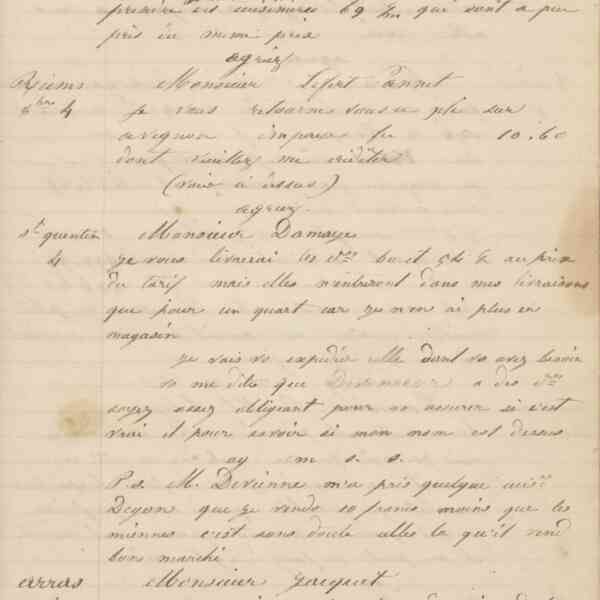 prendre des cuisinières 69 c/m qui sont a peu
près du meme prix
agréez
Reims Monsieur Lefert Pannet
8bre 4 je vous retourne sous ce pli sur
avignon impayé fr 10.60
dont veuillez me créditer
(voir ci dessus)
agréez
st quentin Monsieur Damaye
4 je vous livrerai les 60 et 54 au prix
du tarif mais elles n'entreront dans mes livraisons
que pour un quart car je n'en ai plus en
magasin
je vais vs expedier celle dont vs avez besoin
vs me dites que a des
soyez assez obligeant pour vs assurer si c'est
vrai et pour savoir si mon nom est dessus
ay m s. s.
P.s. M. Devienne m'a pris quelque
que je vends 10 francs moins que les
miennes c'est sans doute celles la qu'il vend
bon marché
arras Monsieur Jacquet